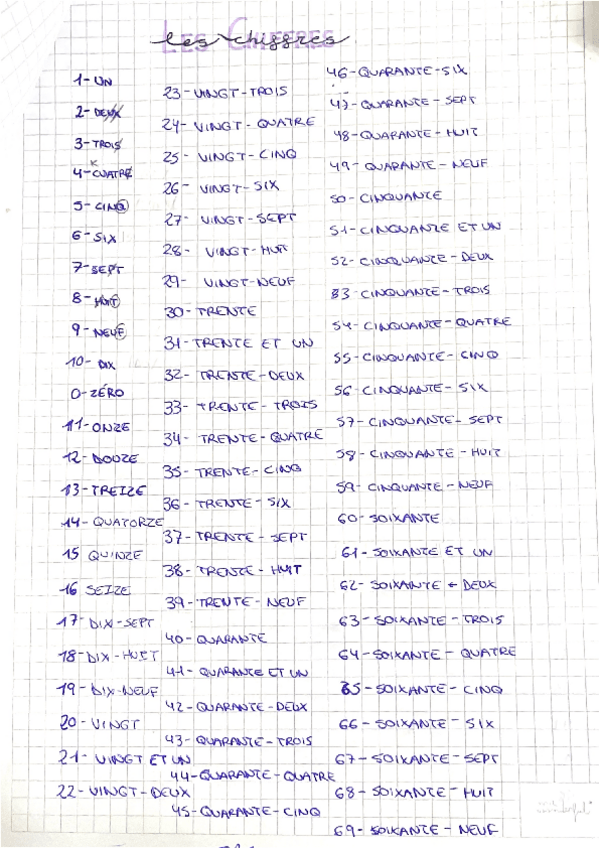 Les Chiffres
1-UN
2-DEUX
3-TROIS
K
4-CUATRE
5-CINQ
6-SIX
7-SEPT
8-HUIT
9-NEUF
10-DIX
0-ZÉRO
11-ONZE
12-DOUZE
13-TREIZE
14-QUATORZE
15 QUINZE
16 SEIZE
17-DIX-SEPT
18-DIX-HUIT
19-DIX-NEUF
20-VINGT
21-VINGT ET UN
22-VINGT-DEUX
23-VINGT-TROIS
24-VINGT-QUATRE
25-VINGT-CINQ
26-VINGT-SIX
27-VINGT-SEPT
28-VINGT-HUIT
29-VINGT-NEUF
30-TRENTE
31-TRENTE ET UN
32-TRENTE-DEUX
33-TRENTE-TROIS
34-TRENTE-QUATRE
35-TRENTE-CINQ
36-TRENTE-SIX
37-TRENTE-SEPT
38-TRENTE-HUIT
39-TRENTE-NEUF
40-QUARANTE
41-QUARANTE ET UN
42-QUARANTE-DEUX
43-QUARANTE-TROIS
44-QUARANTE-QUATRE
45-QUARANTE-CINQ
46-QUARANTE-SIX
47-QUARANTE-SEPT
48-QUARANTE-HUIT
49-QUARANTE-NEUF
50-CINQUANTE
51-CINQUANTE ET UN
52-CINQUANTE-DEUX
53 CINQUANTE-TROIS
54-CINQUANTE-QUATRE
55-CINQUANTE-CINQ
56-CINQUANTE-SIX
57-CINQUANTE-SEPT
58-CINQUANTE-HUIT
59-CINQUANTE-NEUF
60-SOIXANTE
61-SOIXANTE ET UN
62-SOIXANTE-DEUX
63-SOIXANTE-TROIS
64-SOIXANTE-QUATRE
65-SOIXANTE-CINQ
66-SOIXANTE-SIX
67-SOIXANTE-SEPT
68-SOIXANTE-HUIT
69-SOIXANTE-NEUF